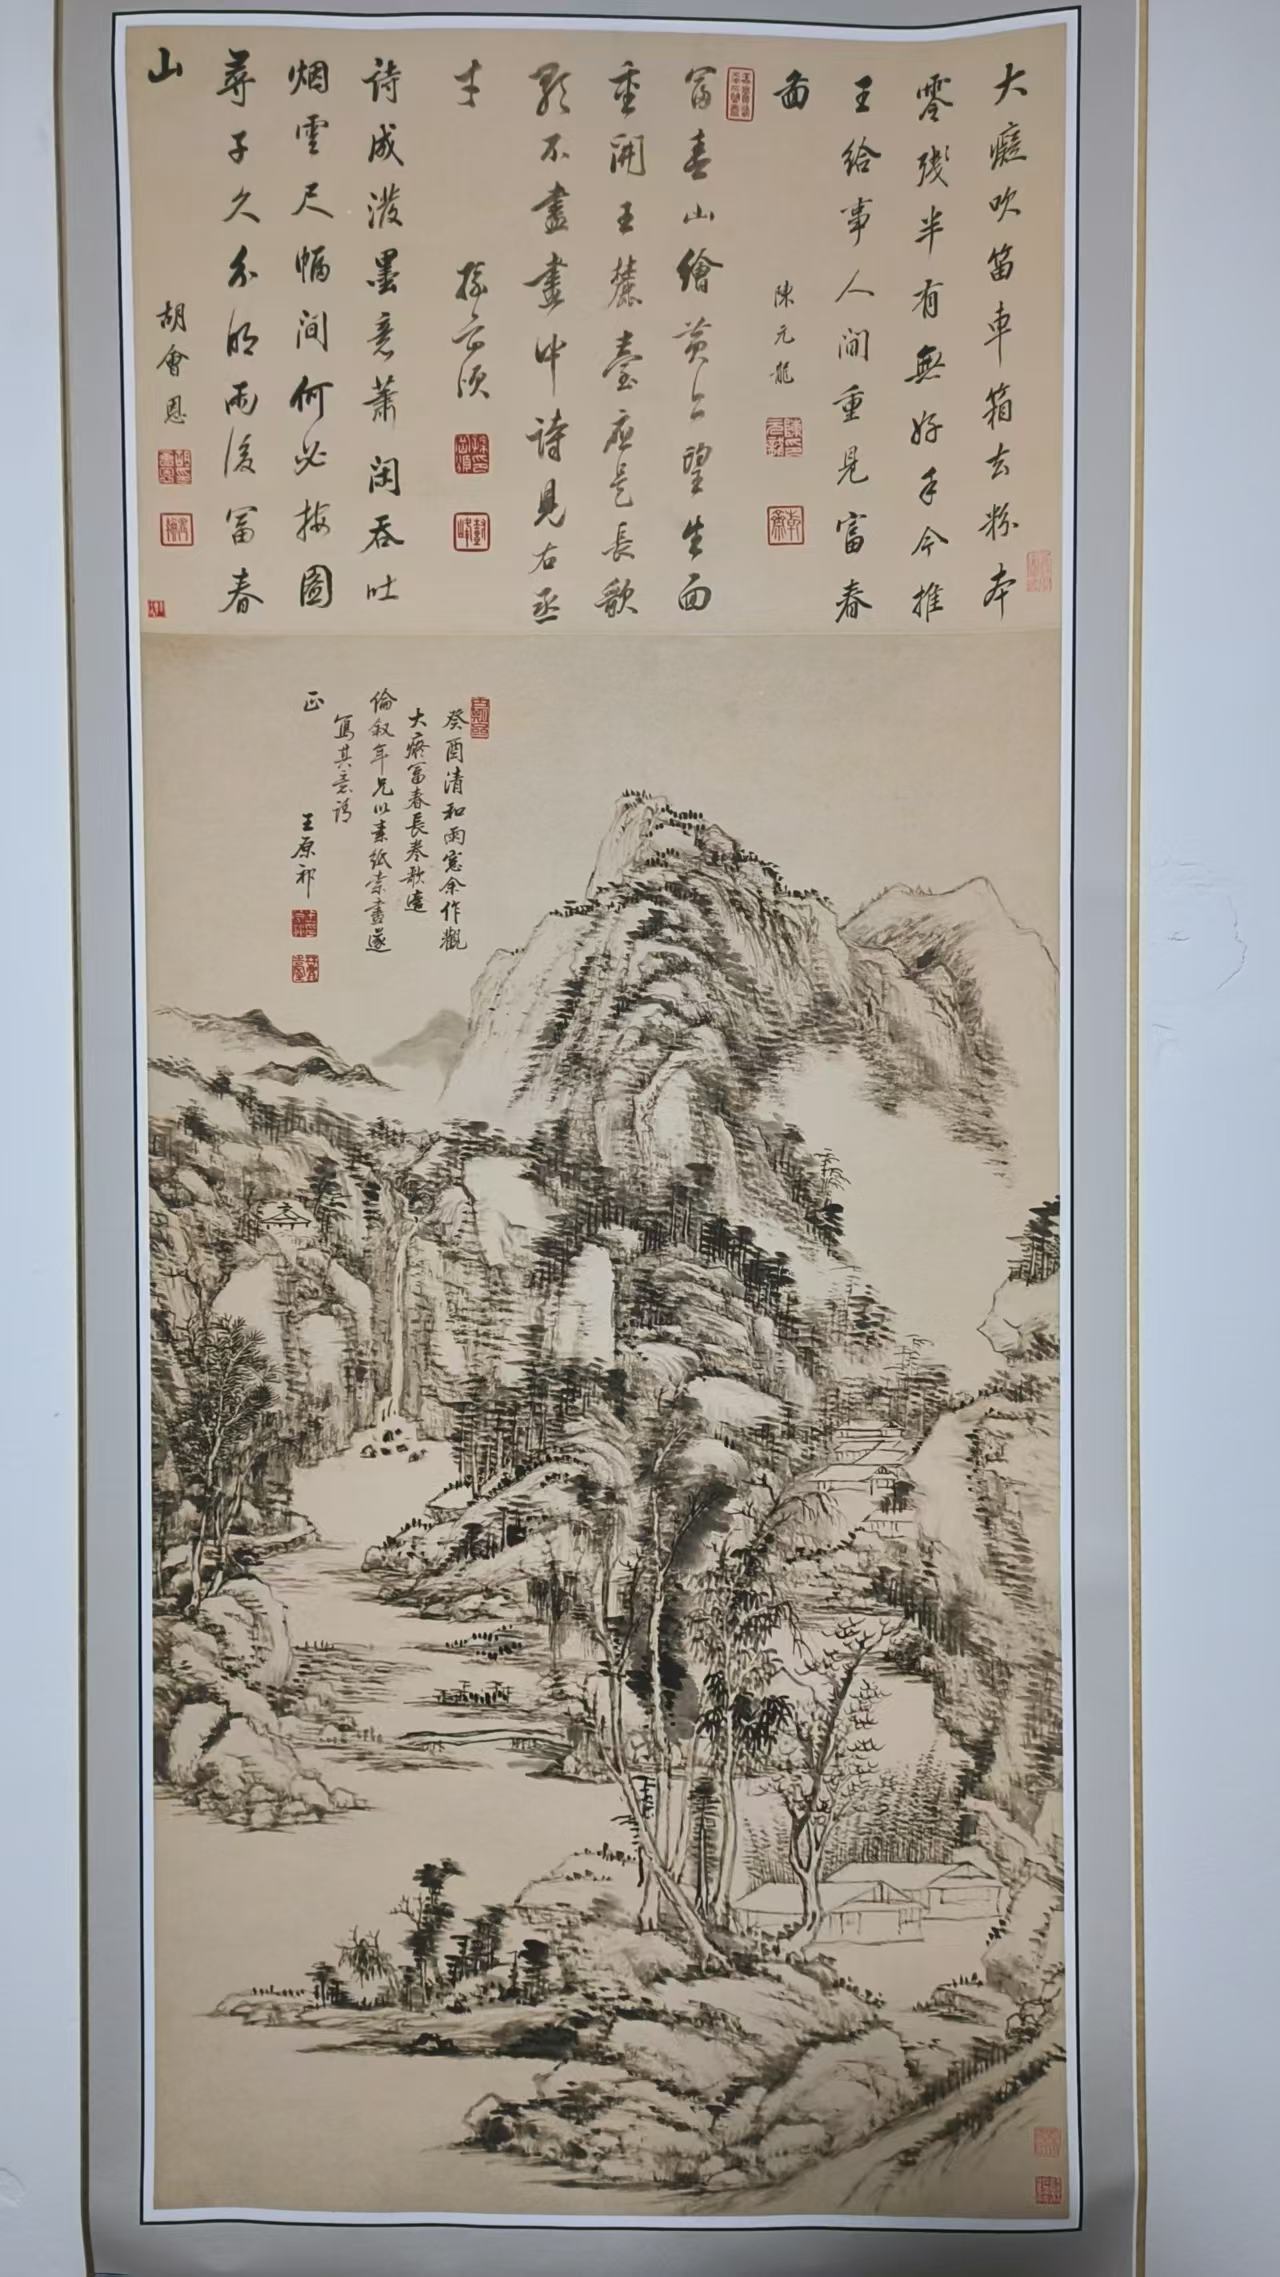 大癡吹笛車箱去粉本
零殘半有無好手今推
王給事人間重見富春
面
陳元龍
富春山繪黃公望生面
重開王麓臺應是長歌
歌不盡畫中詩見右丞
才
孫岳頒
詩成潑墨意蕭閑吞吐
烟雲尺幅間何必按圖
尋子久分明雨後富春
山
胡會恩
癸酉清和雨窓余作觀
大癡富春長卷歌遠
倫叙年兄以素紙索畫遂
寫其意請
正
王原祁